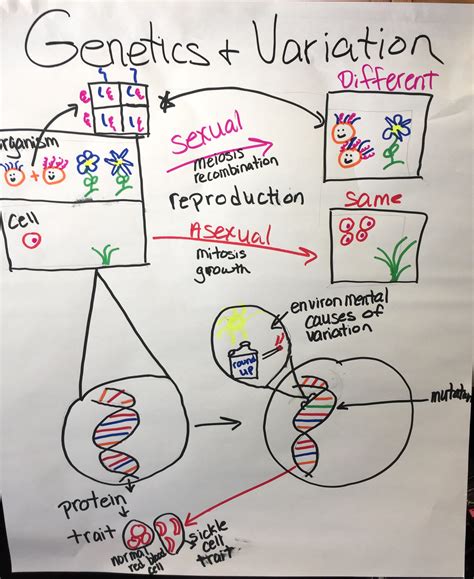 Genetics + Variation
Different
organism
sexual
meiosis
recombination
reproduction
same
cell
Asexual
mitosis
growth
environmental
causes of
variation
round
up
mutation
protein
trait
normal
red blood
cell
sickle
cell
trait